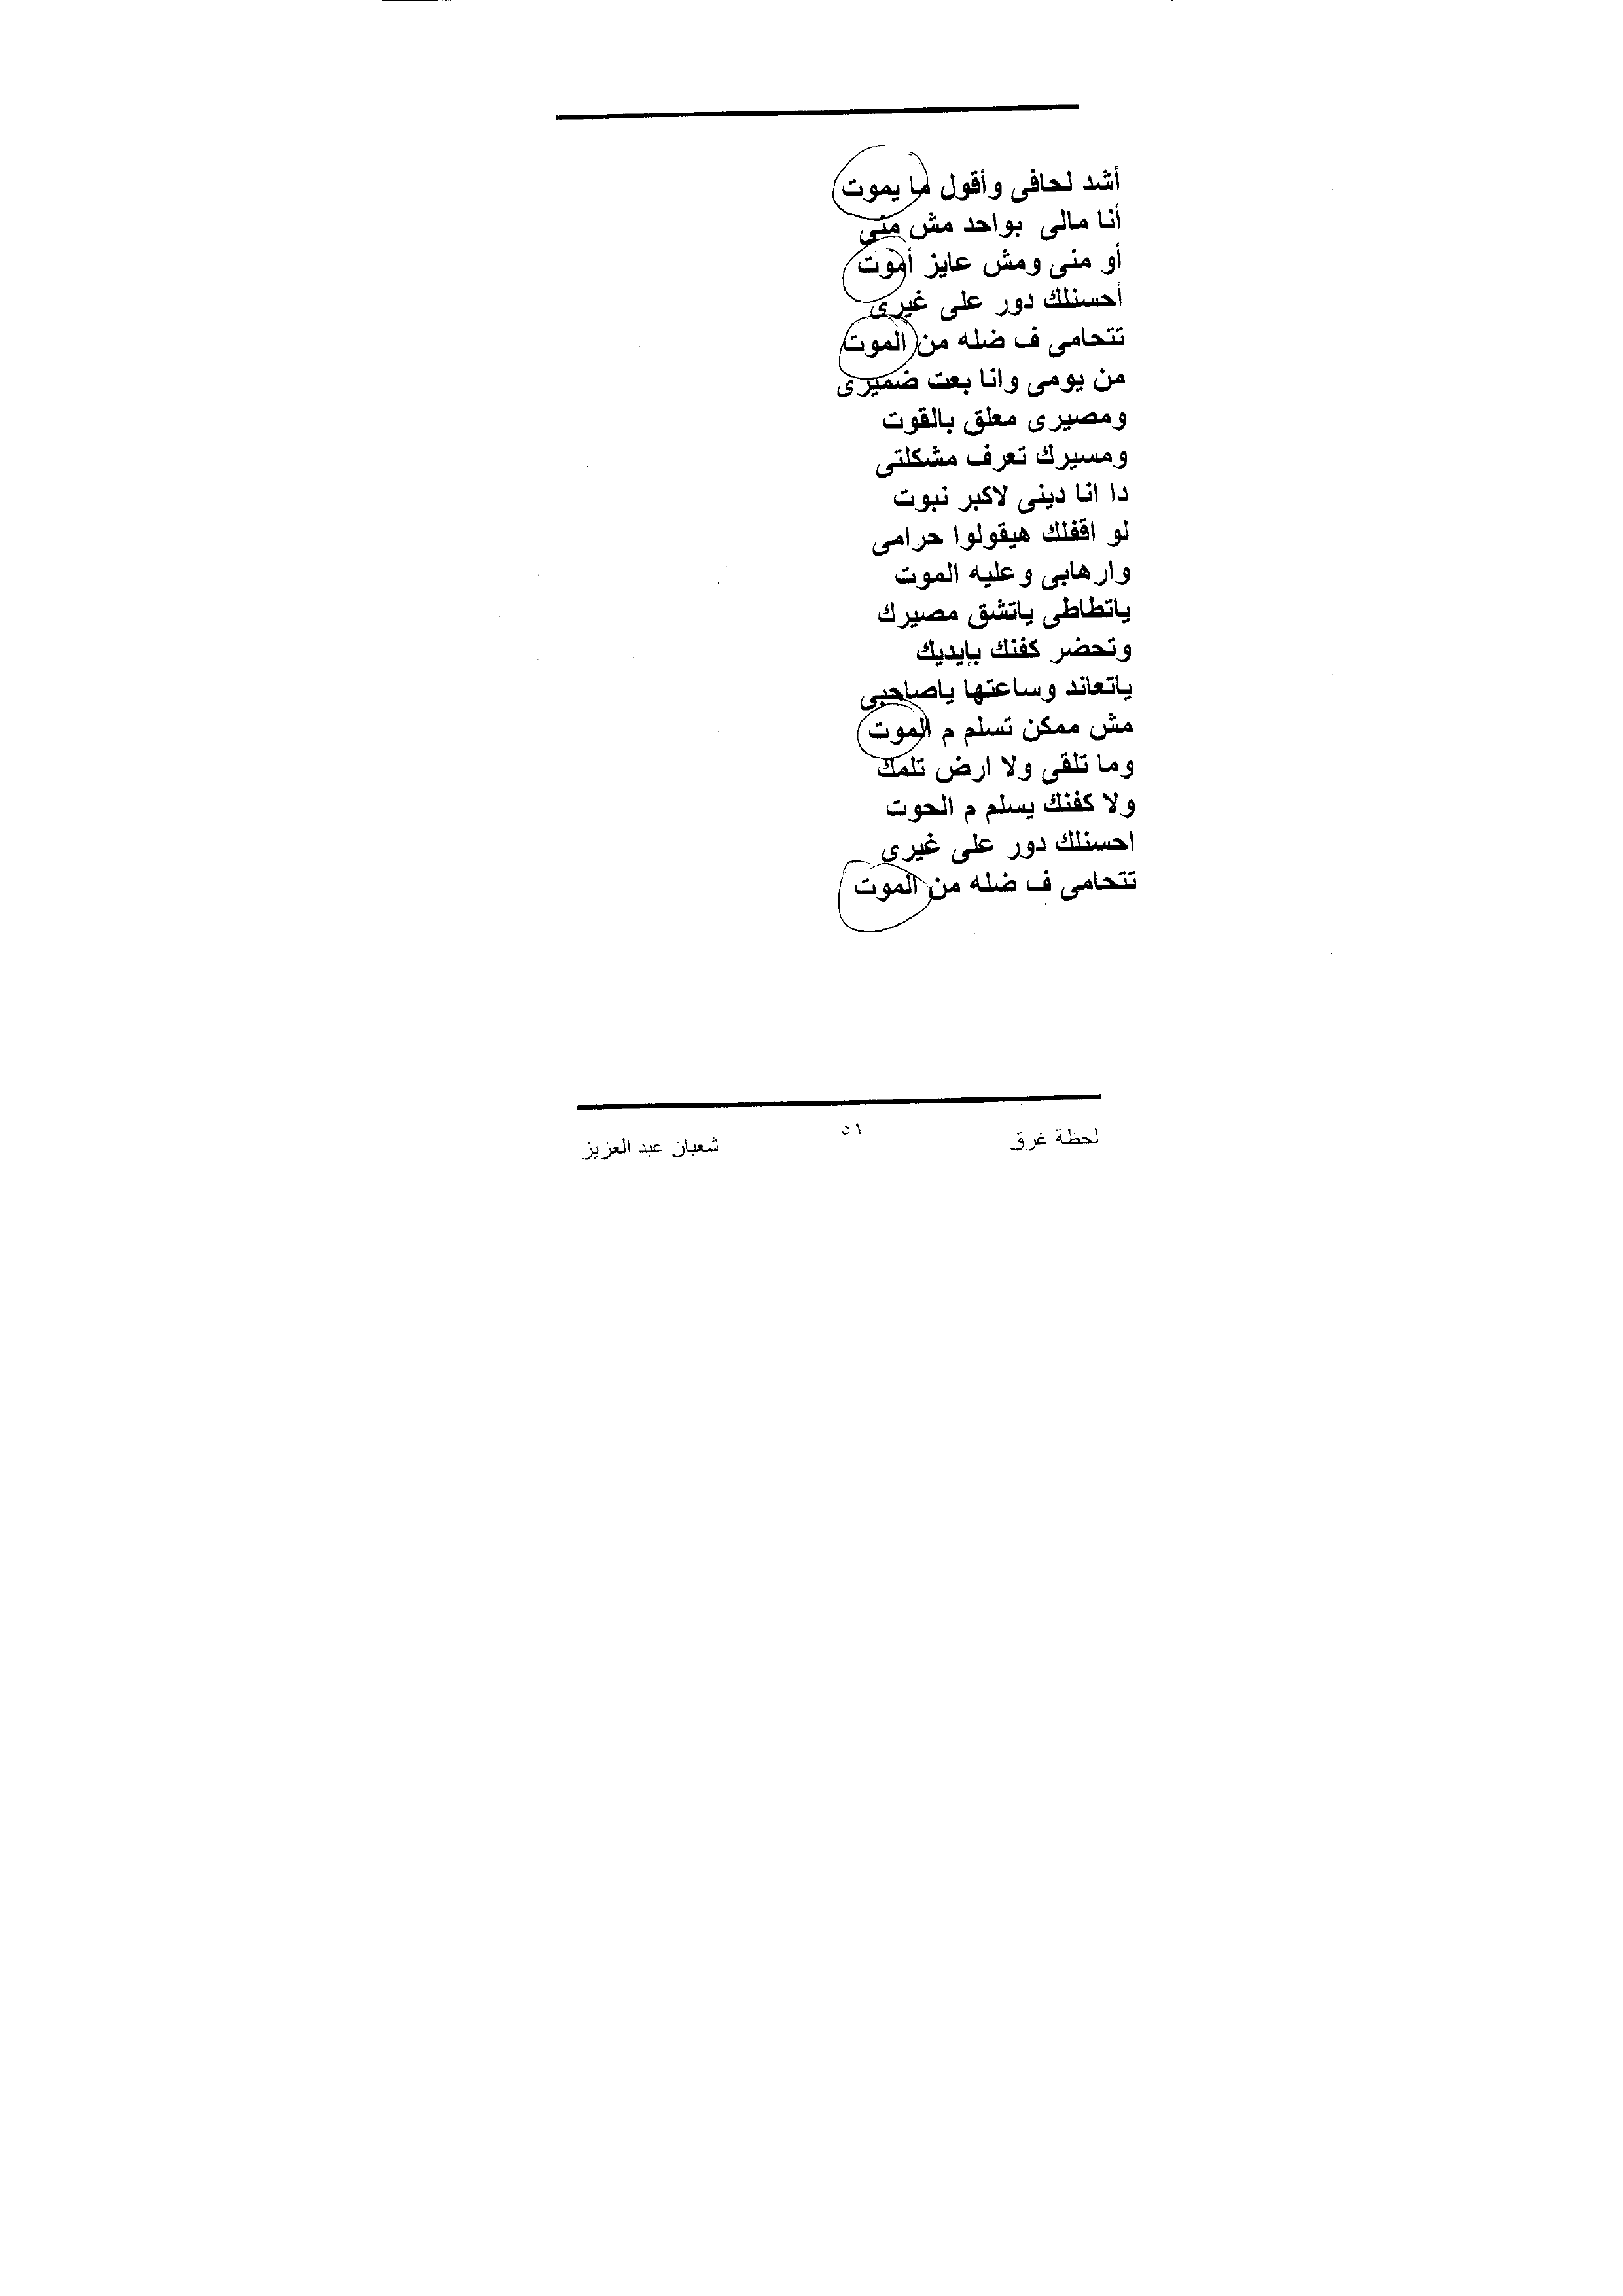 أشد لحافى وأقول ما يموت
أنا مالى بواحد مش منى
أو منى ومش عايز أموت
أحسنلك دور على غيرى
تتحامى ف ضله من الموت
من يومى وانا بعت ضميرى
ومصيرى معلق بالقوت
ومسيرك تعرف مشكلتى
دا انا دينى لاكبر نبوت
لو اقفلك هيقولوا حرامى
وارهابى وعليه الموت
ياتطاطى ياتشق مصيرك
وتحضر كفنك بإيديك
ياتعاند وساعتها ياصاحبى
مش ممكن تسلم م الموت
وما تلقى ولا ارض تلمك
ولا كفنك يسلم م الحوت
احسنلك دور على غيرى
تتحامى ف ضله من الموت
لحظة غرق ٥١ شعبان عبد العزيز